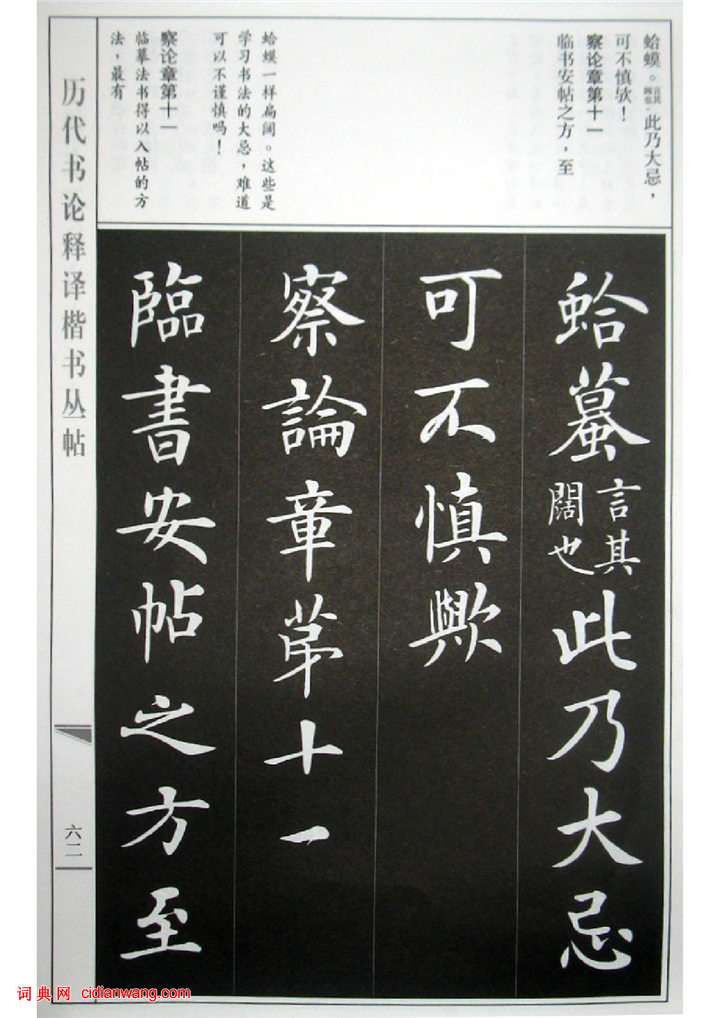 蛤蟆。言其阔也。此乃大忌，
可不慎欤！
察论章第十一
临书安帖之方，至
蛤蟆一样扁阔。这些是
学习书法的大忌，难道
可以不谨慎吗！
察论章第十一
临摹法书得以入帖的方
法，最有
蛤蟇言其闊也此乃大忌
可不慎歟
察論章苐十一
臨書安帖之方至
历代书论释译楷书丛帖
六二
词典网 cidianwang.com